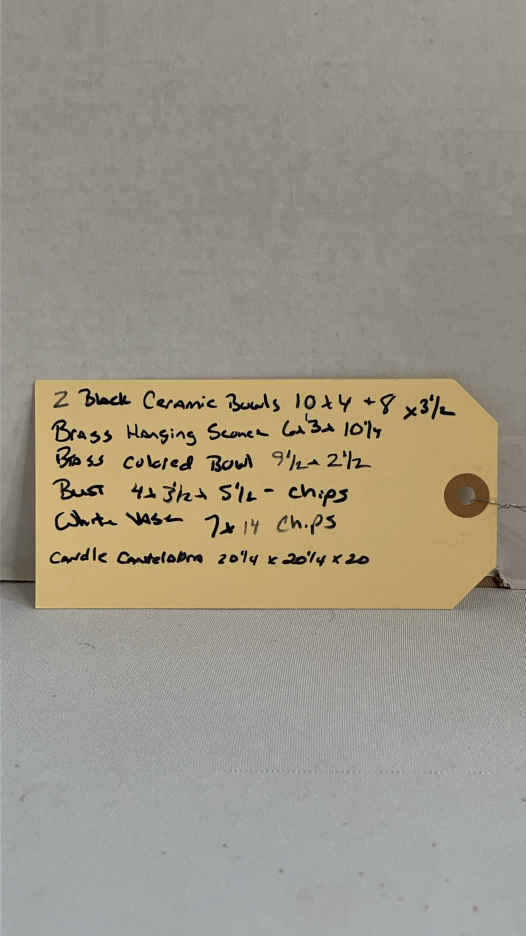 2 Black Ceramic Bowls 10 x 4 + 8 x 3 1/2
Brass Hanging Sconce 6 x 3 x 10 1/4
Brass colored Bowl 9 1/2 x 2 1/2
Bust 4 x 3 1/2 x 5 1/2 - chips
White Vase 7 x 14 chips
Candle Candelabra 20 1/4 x 20 1/4 x 20